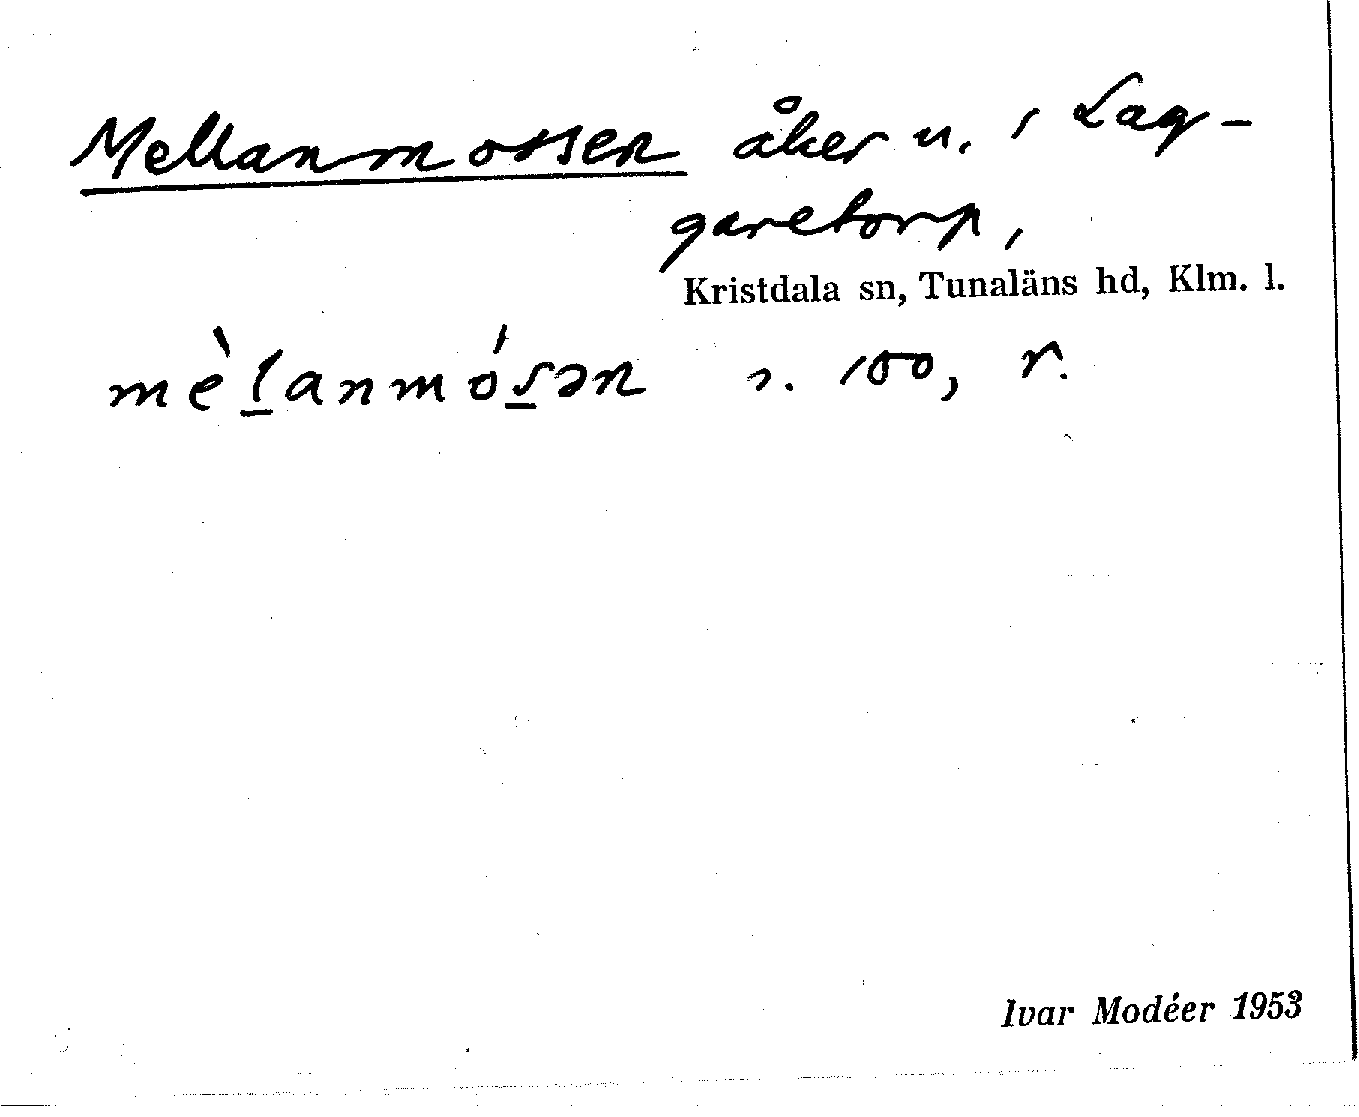 Mellanmossen åker u. i Lag-
garetorp,
Kristdala sn, Tunaläns hd, Klm. l.
mèl̲anmós̲ən s. 100, r.
Ivar Modéer 1953